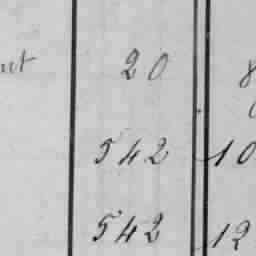 20
542 10
542 12